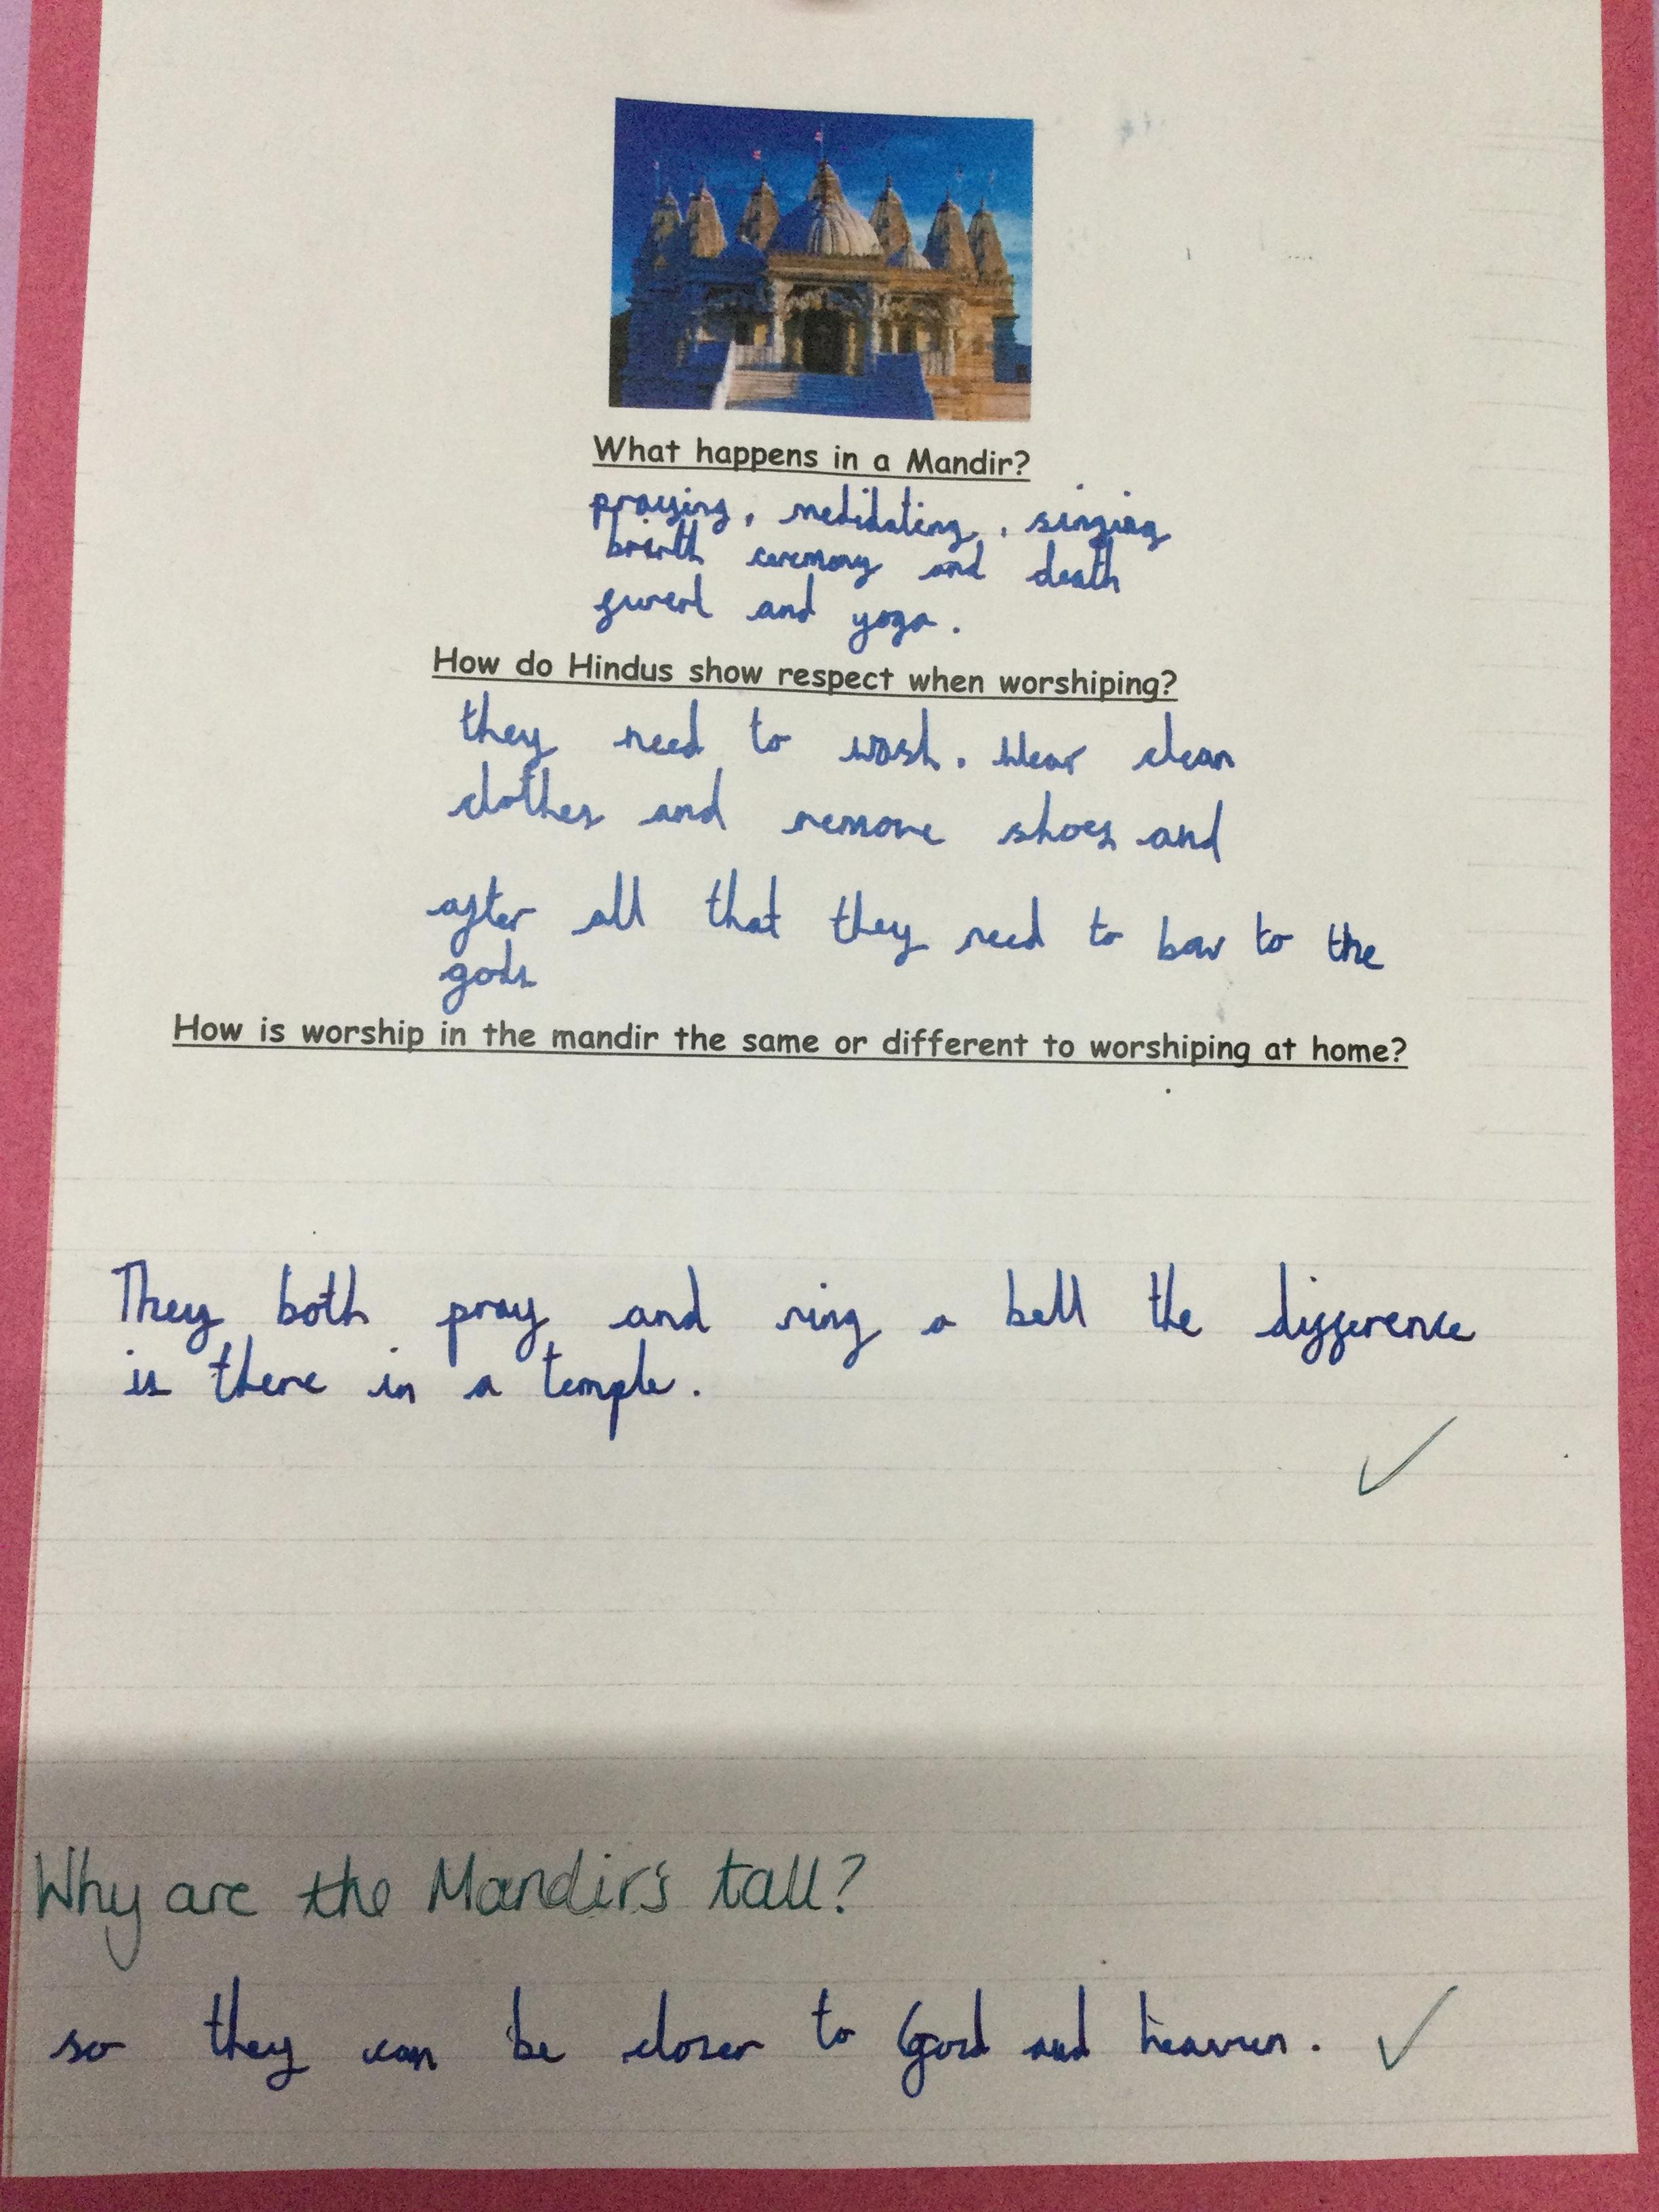 What happens in a Mandir?
praying, medidating, singing
brirth ceremony and death
and yoga.
How do Hindus show respect when worshiping?
they need to wash. Wear clean
clothes and remove shoes and
after all that they need to bow to the
gods
How is worship in the mandir the same or different to worshiping at home?
They both pray and ring a bell the difference
is there in a temple.
Why are the Mandir's tall?
so they can be closer to God and heaven.